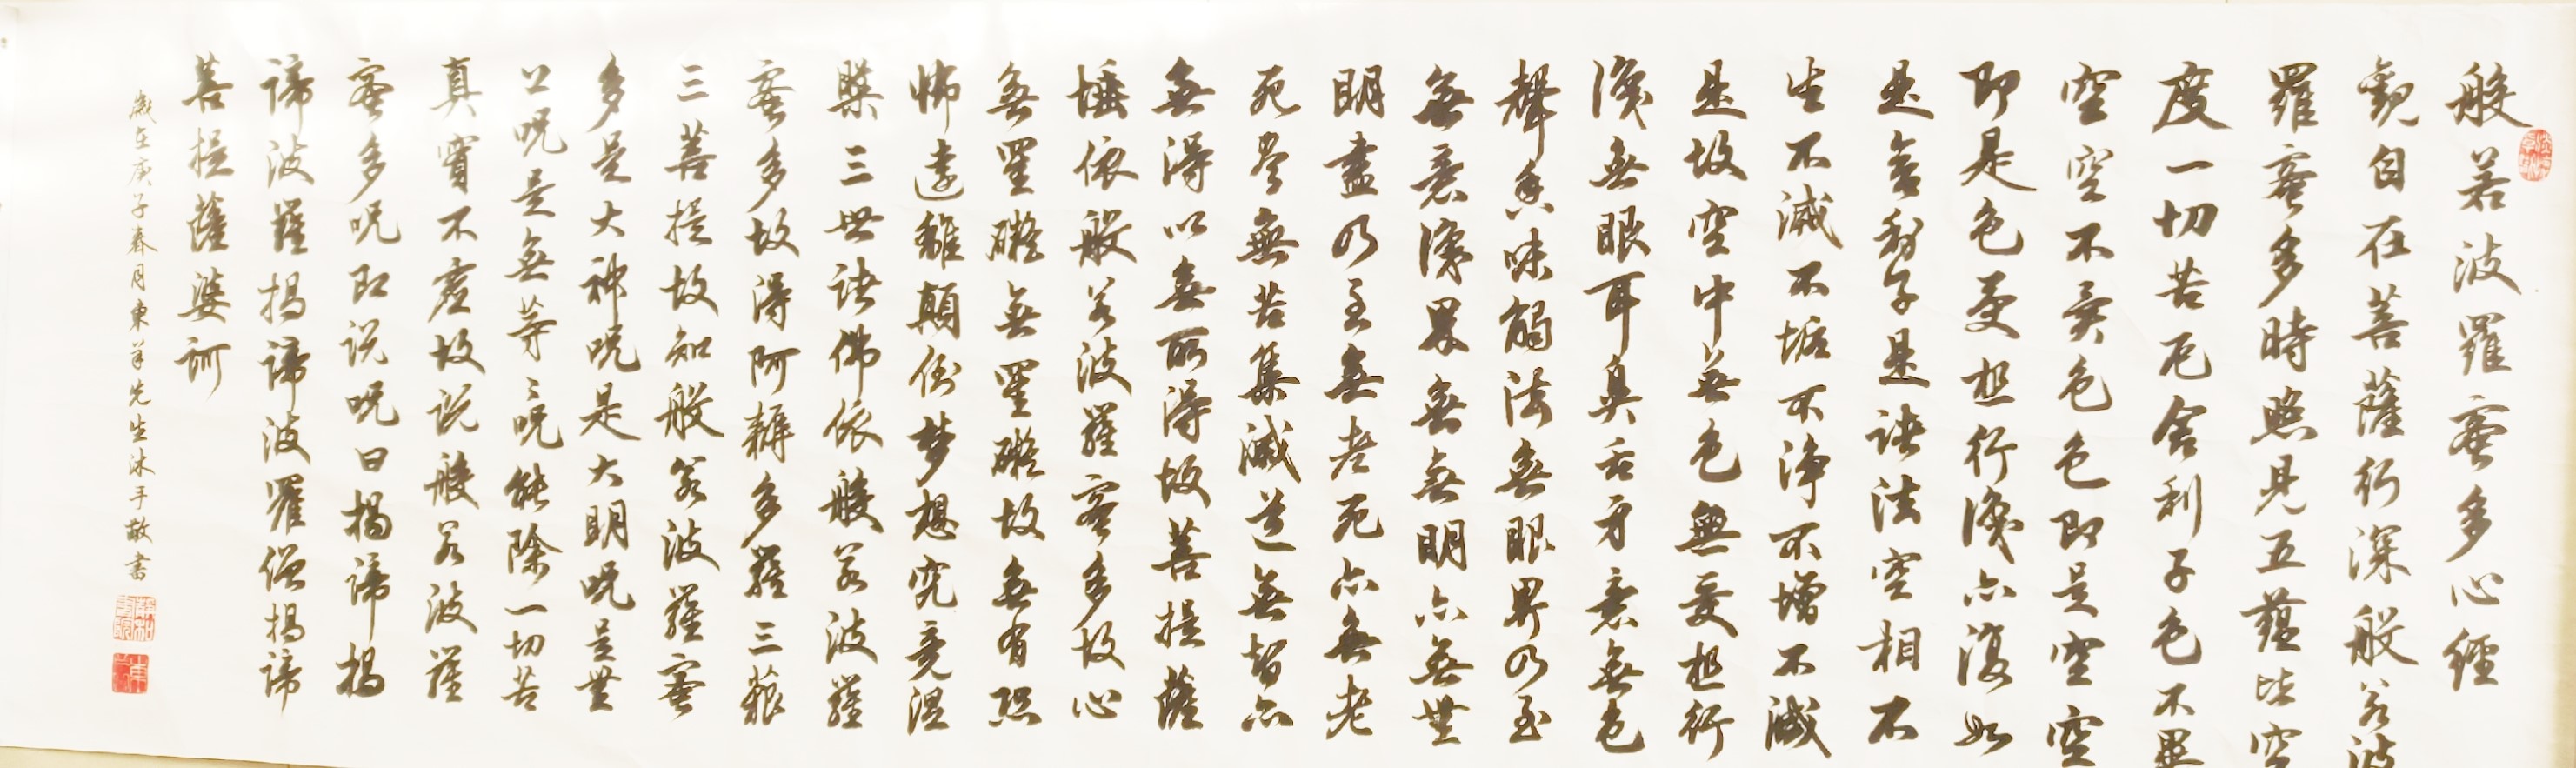 般若波羅蜜多心經
觀自在菩薩行深般若波
羅蜜多時照見五蘊皆空
度一切苦厄舍利子色不異
空空不異色色即是空空
即是色受想行識亦復如
是舍利子是諸法空相不
生不滅不垢不淨不增不減
是故空中無色無受想行
識無眼耳鼻舌身意無色
聲香味觸法無眼界乃至
無意識界無無明亦無無
明盡乃至無老死亦無老
死盡無苦集滅道無智亦
無得以無所得故菩提薩
埵依般若波羅蜜多故心
無罣礙無罣礙故無有恐
怖遠離顛倒夢想究竟涅
槃三世諸佛依般若波羅
蜜多故得阿耨多羅三藐
三菩提故知般若波羅蜜
多是大神呪是大明呪是無
上呪是無等々呪能除一切苦
真實不虛故說般若波羅
蜜多呪即說呪曰揭諦揭
諦波羅揭諦波羅僧揭諦
菩提薩婆訶
歲在庚子春月東羊先生沐手敬書